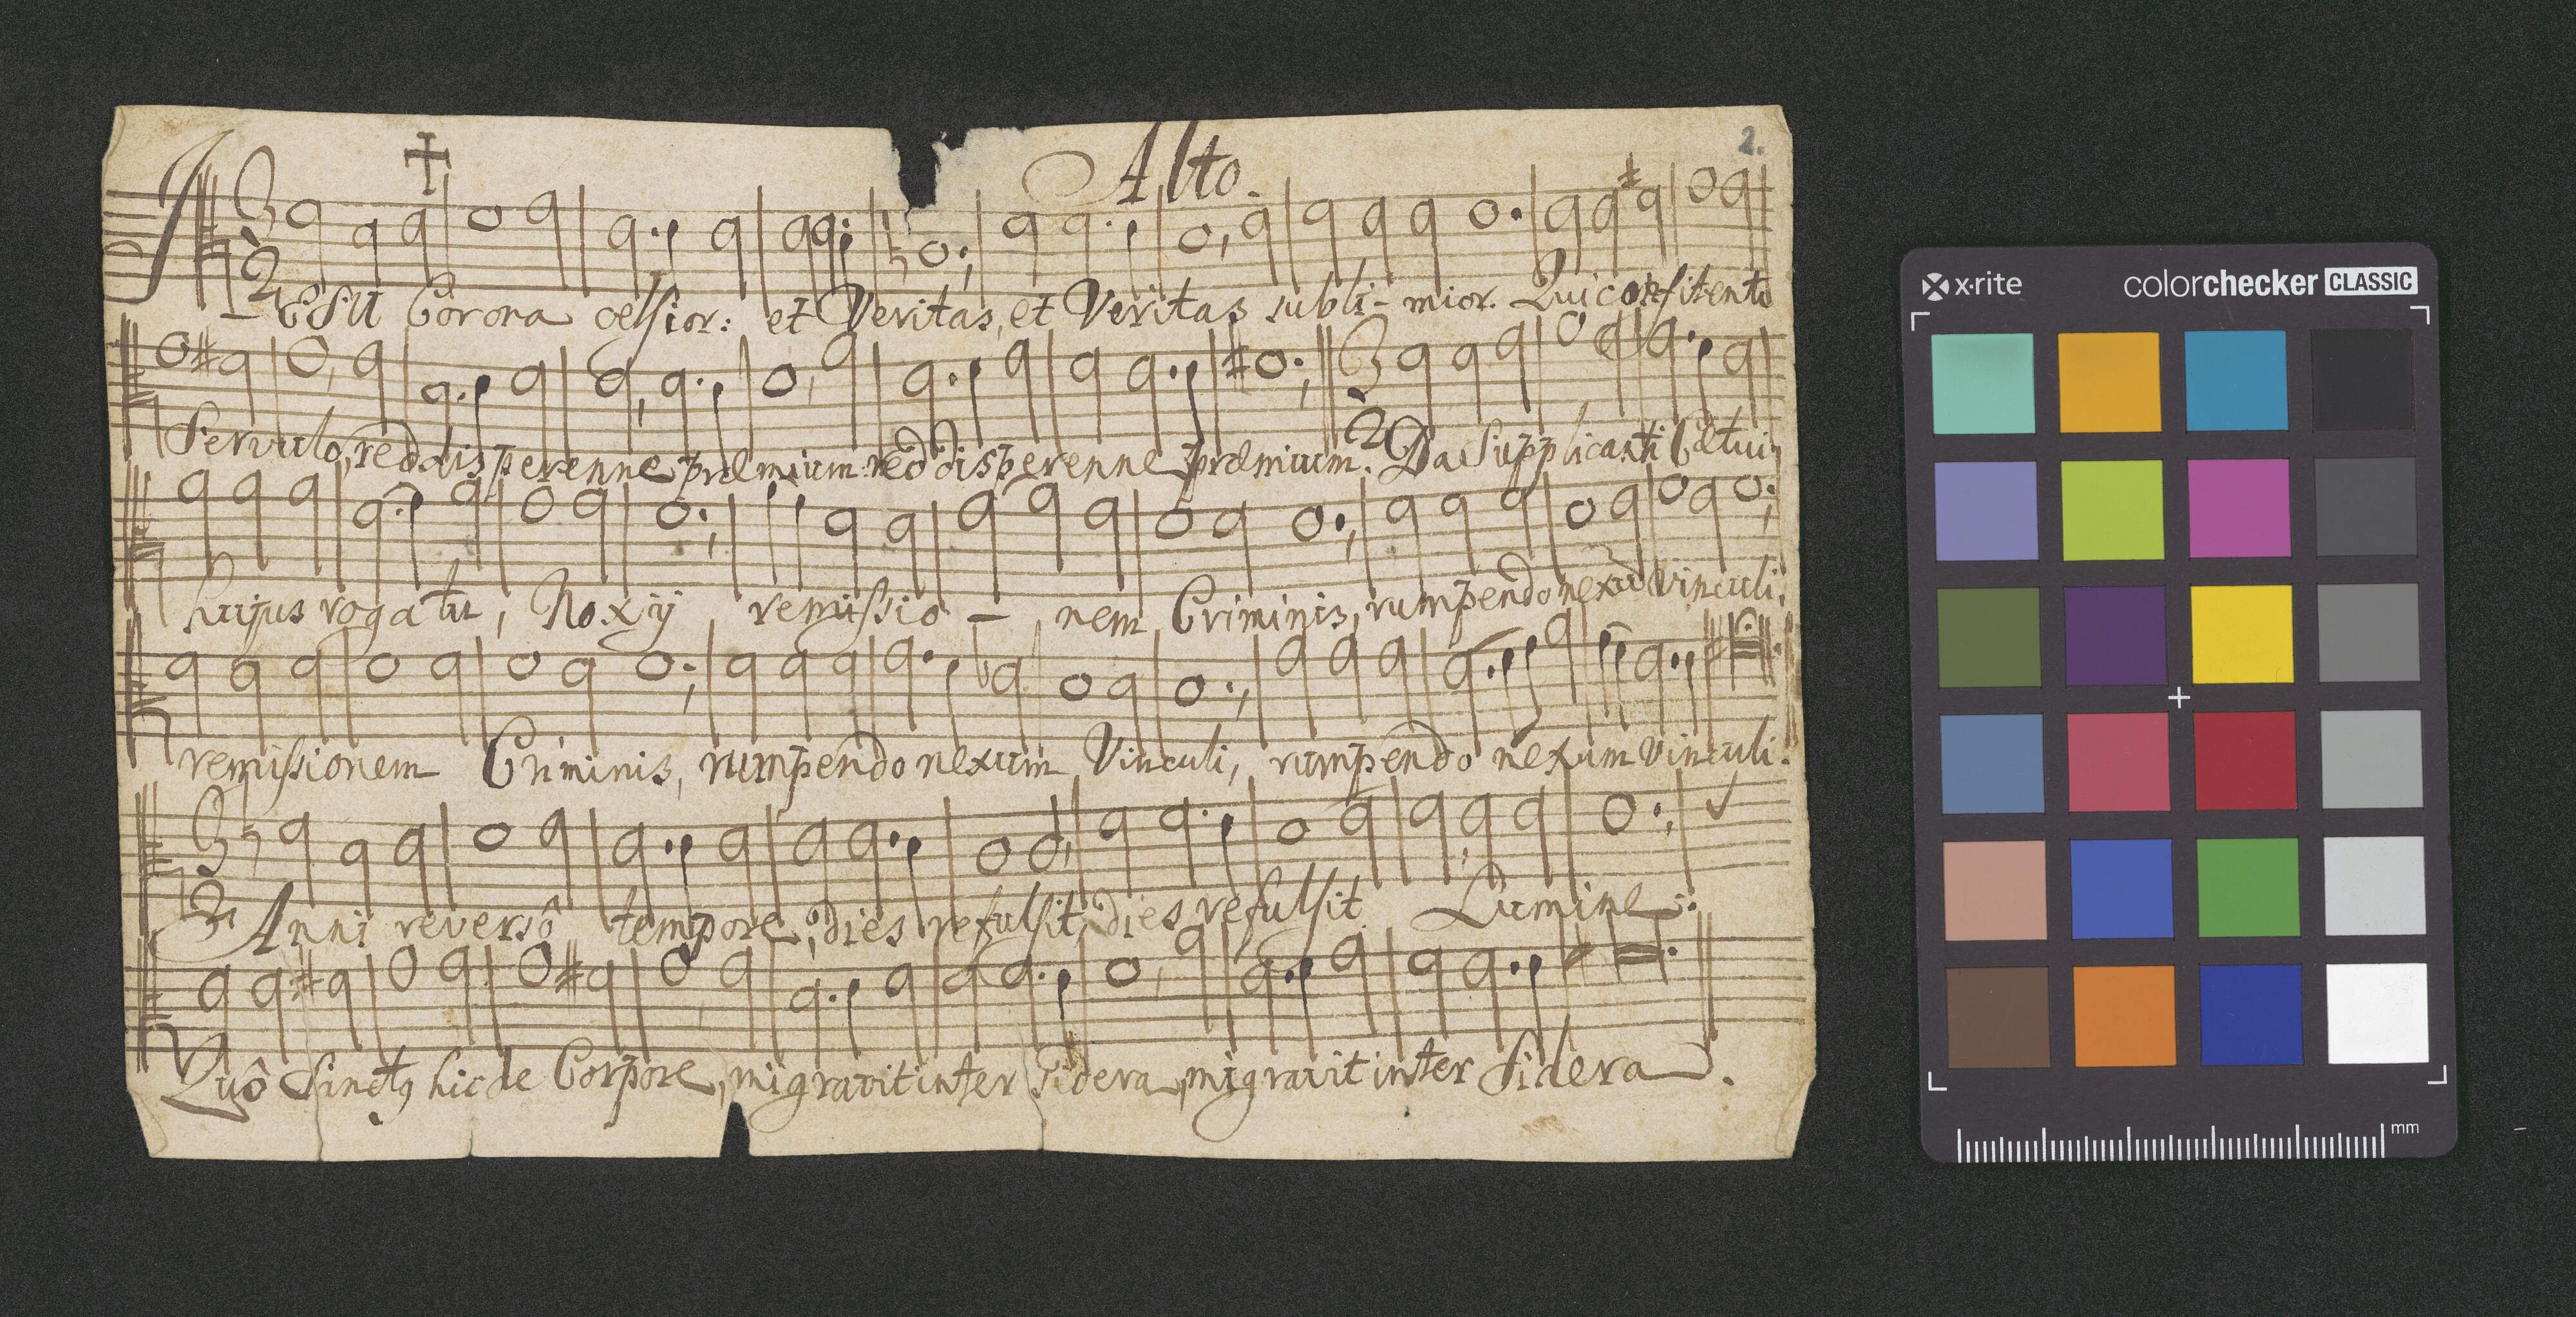 Alto.
2.
IESU Corona celsior: et Veritas, et Veritas subli- mior. Qui confitenti
Servulo, reddis perenne præmium: reddis perenne præmium. Da supplicanti Cætui,
hujus rogatu, Noxij remissio - nem Criminis, rumpendo nexū Vinculi,
remissionem Criminis, rumpendo nexum Vinculi, rumpendo nexum Vinculi.
Anni reversô tempore, dies refulsit, dies refulsit Lumine:
Quô Sanctꝰ hic de Corpore, migravit inter Sidera, migravit inter Sidera.
x·rite
colorchecker CLASSIC
mm